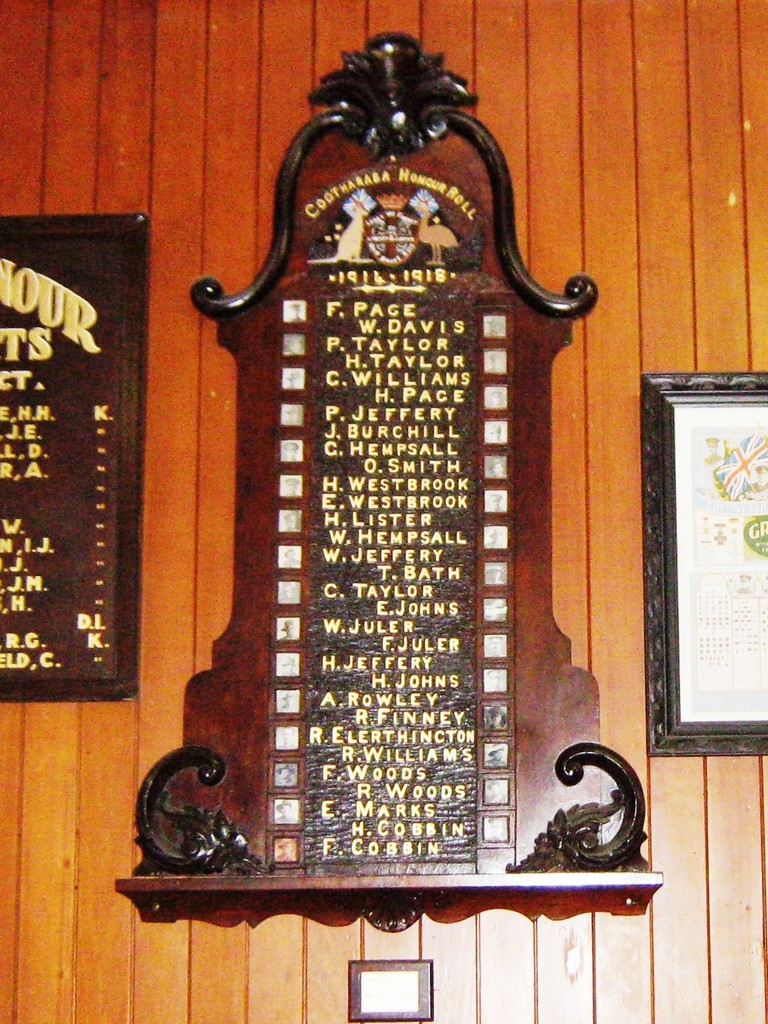 COOTHARABA HONOUR ROLL
1914 - 1918
F. PAGE
W. DAVIS
P. TAYLOR
H. TAYLOR
C. WILLIAMS
H. PAGE
P. JEFFERY
J. BURCHILL
G. HEMPSALL
O. SMITH
H. WESTBROOK
E. WESTBROOK
H. LISTER
W. HEMPSALL
W. JEFFERY
T. BATH
C. TAYLOR
E. JOHNS
W. JULER
F. JULER
H. JEFFERY
H. JOHNS
A. ROWLEY
R. FINNEY
R. ELERTHINGTON
R. WILLIAMS
F. WOODS
R. WOODS
E. MARKS
H. COBBIN
F. COBBIN
NOUR
TS
CT.
E, H.H. K.
J.E. "
LL, D. "
R, A. "
W. "
N, I.J. "
J. "
, J.M. "
, H. "
D.I.
, R.G. K.
ELD, C. "
GR